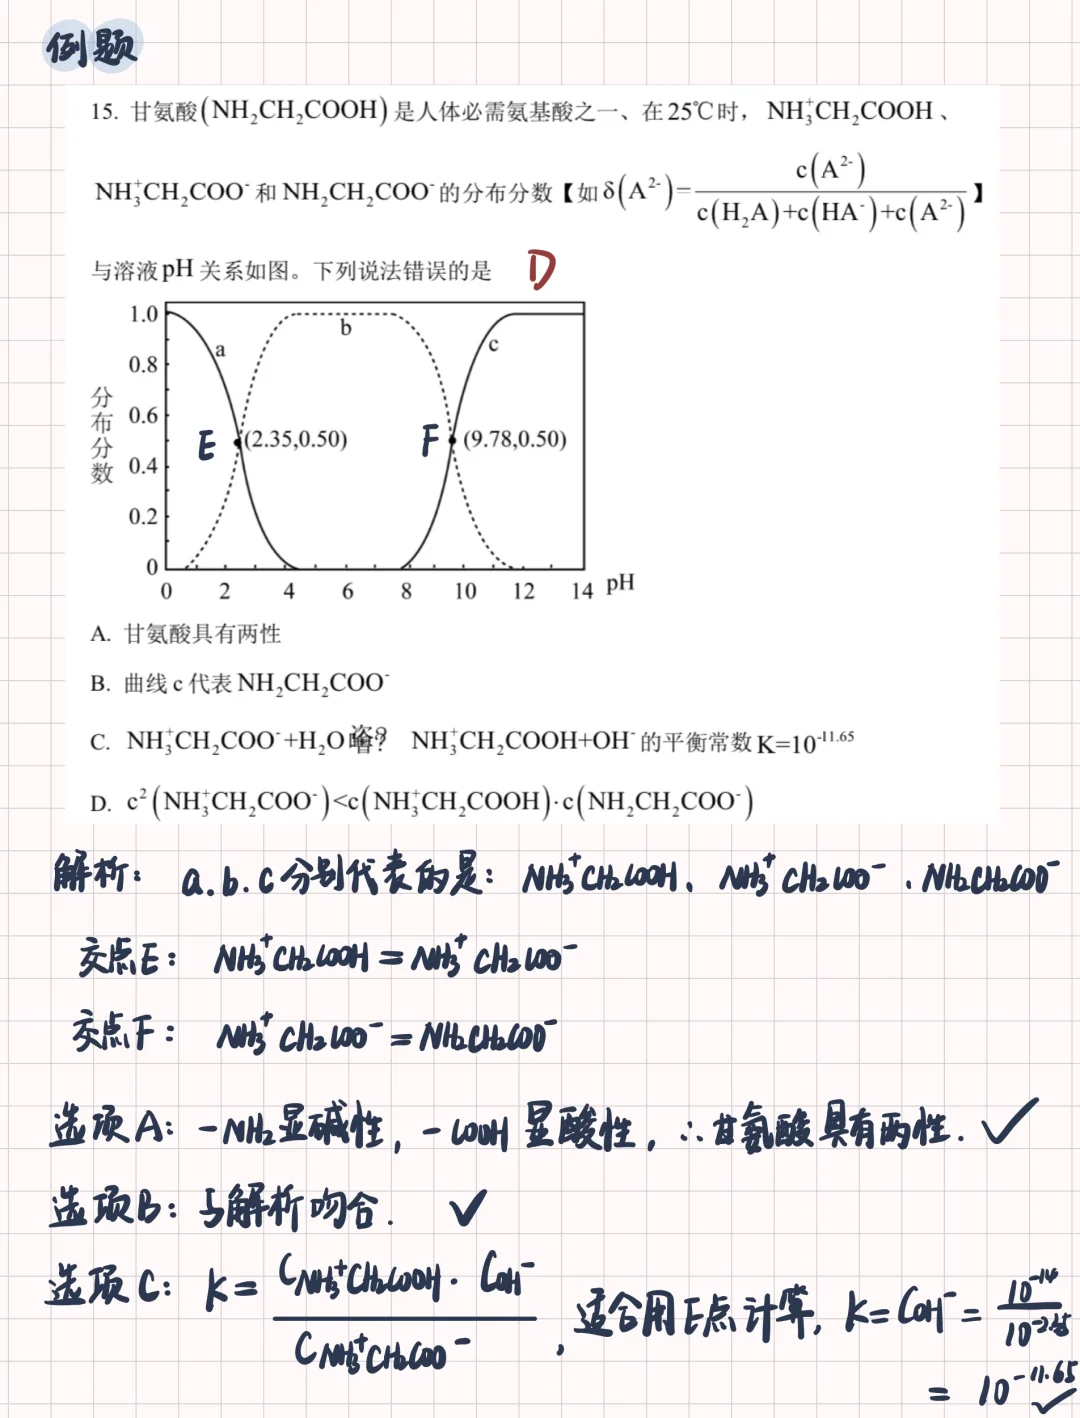 例题
15. 甘氨酸(NH₂CH₂COOH)是人体必需氨基酸之一、在25℃时，NH₃⁺CH₂COOH、
NH₃⁺CH₂COO⁻和NH₂CH₂COO⁻的分布分数【如δ(A²⁻)=c(A²⁻)/(c(H₂A)+c(HA⁻)+c(A²⁻))】
与溶液pH关系如图。下列说法错误的是 D
1.0
0.8
0.6
0.4
0.2
0
分布分数
a
b
c
E (2.35,0.50)
F (9.78,0.50)
0 2 4 6 8 10 12 14 pH
A. 甘氨酸具有两性
B. 曲线c代表NH₂CH₂COO⁻
C. NH₃⁺CH₂COO⁻+H₂O ? NH₃⁺CH₂COOH+OH⁻的平衡常数K=10⁻¹¹·⁶⁵
D. c²(NH₃⁺CH₂COO⁻)<c(NH₃⁺CH₂COOH)·c(NH₂CH₂COO⁻)
解析：a.b.c分别代表的是：NH₃⁺CH₂COOH、NH₃⁺CH₂COO⁻、NH₂CH₂COO⁻
交点E：NH₃⁺CH₂COOH=NH₃⁺CH₂COO⁻
交点F：NH₃⁺CH₂COO⁻=NH₂CH₂COO⁻
选项A：-NH₂显碱性，-COOH显酸性，∴甘氨酸具有两性. ✓
选项B：与解析吻合. ✓
选项C：K=(C NH₃⁺CH₂COOH · C OH⁻)/(C NH₃⁺CH₂COO⁻)，适合用E点计算，K=C OH⁻=10⁻¹⁴/10⁻²·³⁵
=10⁻¹¹·⁶⁵ ✓